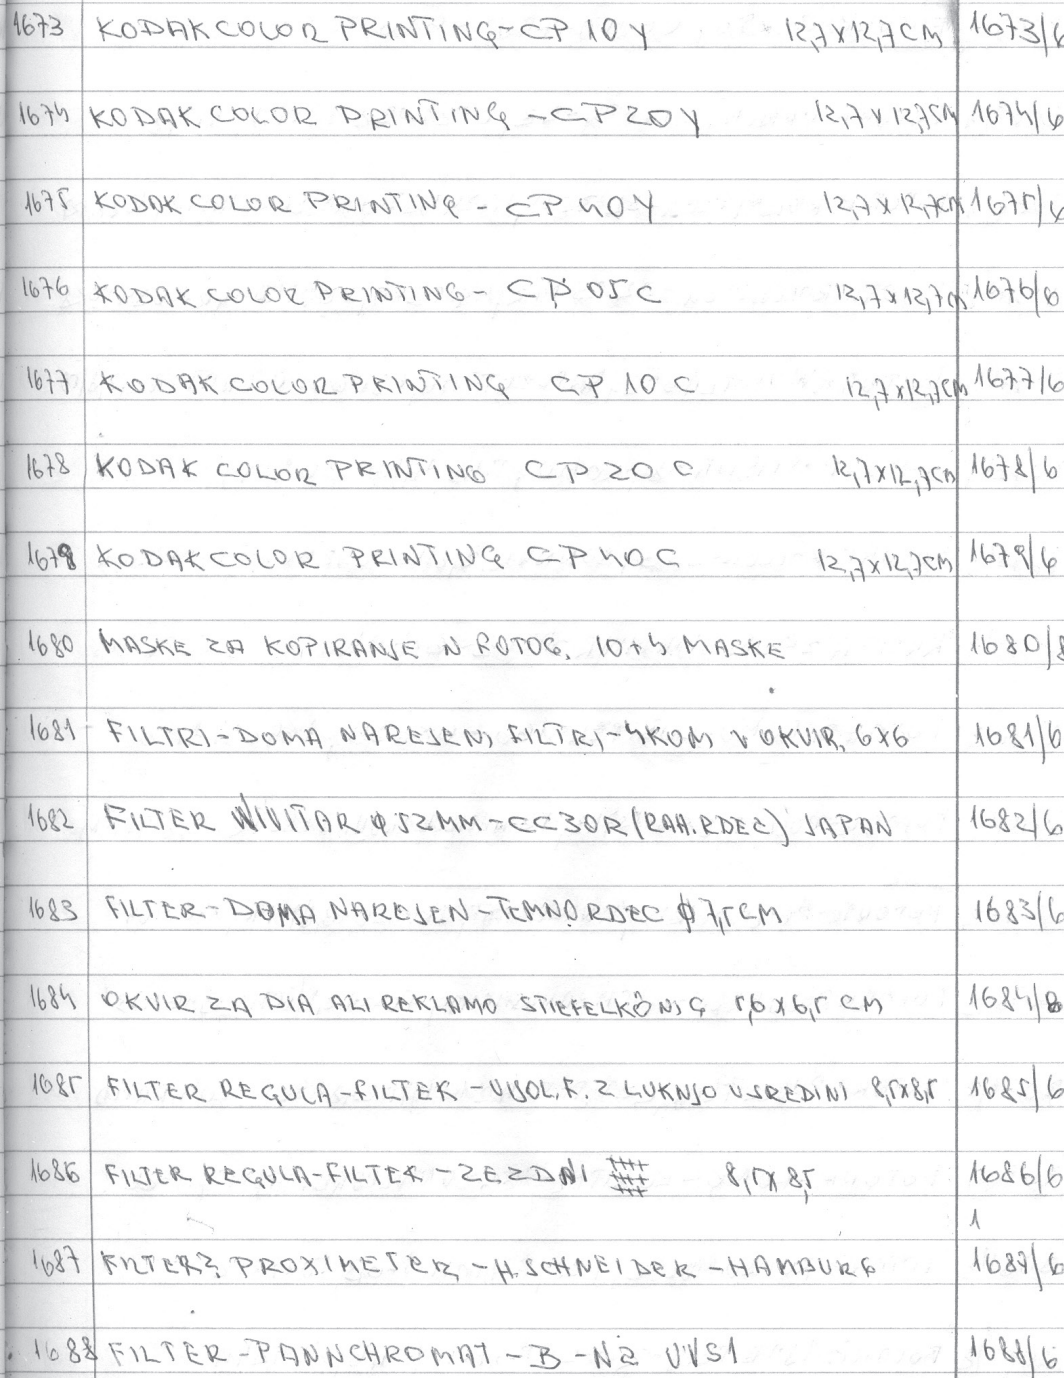 1673 KODAK COLOR PRINTING-CP 10 Y 12,7 X 12,7 CM 1673/6
1674 KODAK COLOR PRINTING -CP 20 Y 12,7 X 12,7 CM 1674/6
1675 KODAK COLOR PRINTING - CP 40 Y 12,7 X 12,7 CM 1675/6
1676 KODAK COLOR PRINTING - CP 05 C 12,7 X 12,7 CM 1676/6
1677 KODAK COLOR PRINTING CP 10 C 12,7 X 12,7 CM 1677/6
1678 KODAK COLOR PRINTING CP 20 C 12,7 X 12,7 CM 1678/6
1679 KODAK COLOR PRINTING CP 40 C 12,7 X 12,7 CM 1679/6
1680 MASKE ZA KOPIRANJE N FOTOG. 10+4 MASKE 1680/8
1681 FILTRI-DOMA NAREJENI FILTRI-4KOM V OKVIR. 6X6 1681/6
1682 FILTER VIVITAR φ 52 MM-CC30R (RAH.RDEČ) JAPAN 1682/6
1683 FILTER-DOMA NAREJEN-TEMNO RDEČ φ 7,5 CM 1683/6
1684 OKVIR ZA DIA ALI REKLAMO STIEFELKÖNIG 5,6 X 6,5 CM 1684/8
1685 FILTER REGULA-FILTEK - VIJOL.F. Z LUKNJO V SREDINI 8,5X8,5 1685/6
1686 FILTER REGULA-FILTEK - ZEZDNI 8,5 X 8,5 1686/6
1
1687 FILTER? PROXIMETER - H.SCHNEIDER - HAMBURG 1687/6
1688 FILTER - PANNCHROMAT - B - N2 VVS1 1688/6